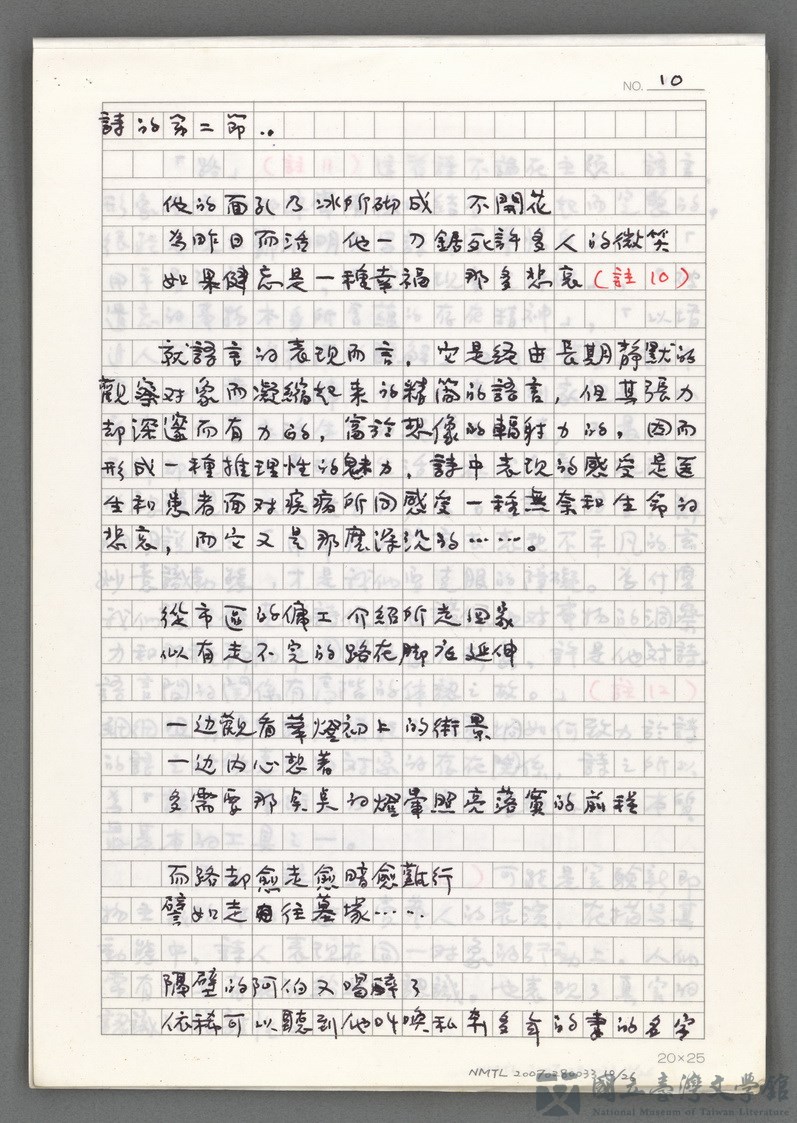 NO. 10
詩的第二節。
他的面孔乃冰所砌成 不開花
為昨日而活 他一刀鋸死許多人的微笑
如果健忘是一種幸福 那多悲哀(註10)
就語言的表現而言,它是經由長期靜默的
觀察对象而凝縮起來的精簡的語言,但其張力
却深邃而有力的,富於想像的輻射力的,因而
形成一種推理性的魅力,詩中表現的感受是医
生和患者面对疾病所同感受一種無奈和生命的
悲哀,而它又是那麼深沉的……。
從市區的傭工介紹所走回家
似有走不完的路在脚底延伸
一边觀看華燈初上的街景
一边內心想著
多需要那矣矣的燈暈照亮落寞的前程
而路却愈走愈暗愈難行
譬如走向往墓塚……
隔壁的阿伯又喝醉了
依稀可以聽到他叫喚私奔多年的妻的名字
20×25
NMTL 20070280033 10/26
國立臺灣文學館
National Museum of Taiwan Literature